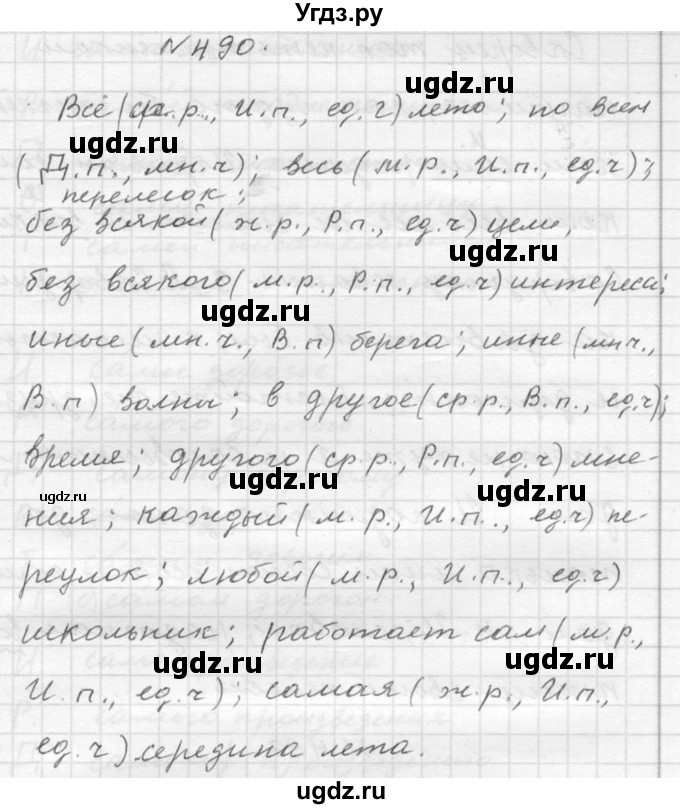 Угдз.ру
N490.
Всё (ср.р., И.п., ед.ч) лето; по всем
(Д.п., мн.ч); весь (м.р., И.п., ед.ч);
перелесок;
без всякой (ж.р., Р.п., ед.ч) цели,
без всякого (м.р., Р.п., ед.ч) интереса;
иные (мн.ч., В.п) берега; иные (мн.ч.,
В.п) волны; в другое (ср.р., В.п., ед.ч);
время; другого (ср.р., Р.п., ед.ч) мне-
ния; каждый (м.р., И.п., ед.ч) пе-
реулок; любой (м.р., И.п., ед.ч)
школьник; работает сам (м.р.,
И.п., ед.ч); самая (ж.р., И.п.,
ед.ч) середина лета.
ugdz.ru
ugdz.ru
ugdz.ru
ugdz.ru
ugdz.ru
ugdz.ru
ugdz.ru
ugdz.ru
ugdz.ru
ugdz.ru
ugdz.ru
ugdz.ru